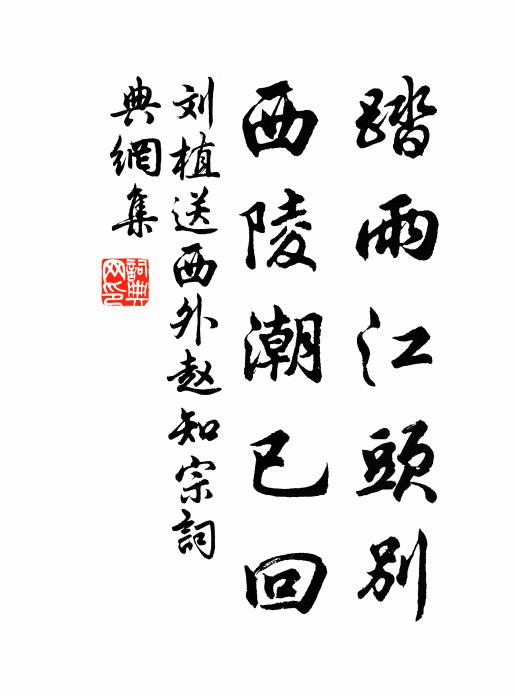 踏雨江頭别
西陵潮已回
刘植送西外赵知宗詞
典網集
詞典
网印